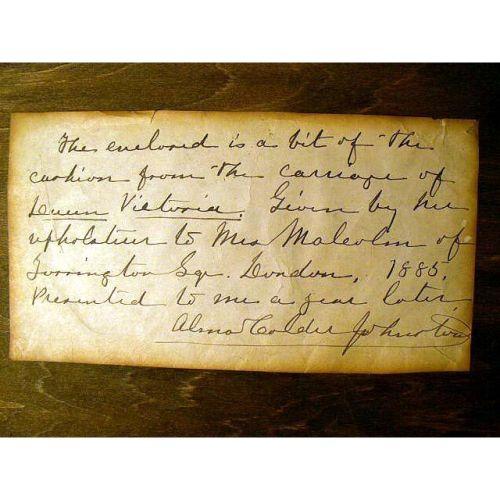 The enclosed is a bit of the
cushion from the carriage of
Queen Victoria. Given by her
upholsterer to Mrs Malcolm of
Torrington Sqr. London, 1885.
Presented to me a year later,
Alma Calder Johnston